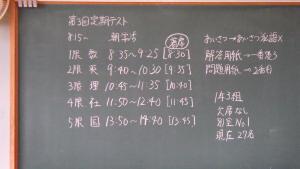 第3回定期テスト
8:15～ 朝学活
着席
1限 数 8:35～9:25 [8:30]
2限 英 9:40～10:30 [9:35]
3限 理 10:45～11:35 [10:40]
4限 社 11:50～12:40 [11:45]
5限 国 13:50～14:40 [13:45]
あいさつ→あいさつ
解答用紙→一番後ろ
問題用紙→2番目
1年3組
欠席なし
別室No.1
現在27名